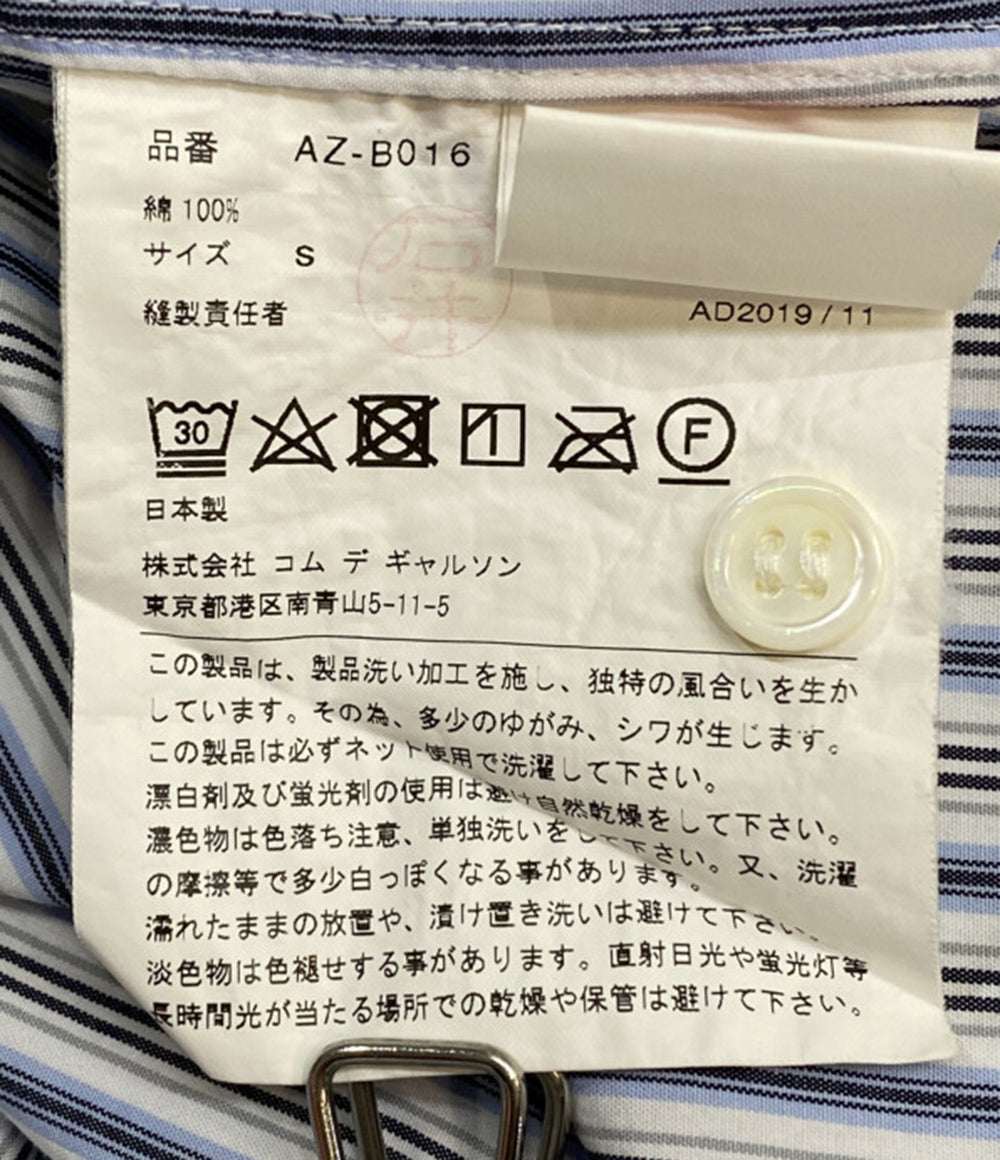 品番 AZ-B016
綿 100%
サイズ S
縫製責任者 AD2019/11
30 F
日本製
株式会社 コム デ ギャルソン
東京都港区南青山5-11-5
この製品は、製品洗い加工を施し、独特の風合いを生か
しています。その為、多少のゆがみ、シワが生じます。
この製品は必ずネット使用で洗濯して下さい。
漂白剤及び蛍光剤の使用は避け自然乾燥をして下さい。
濃色物は色落ち注意、単独洗いをして下さい。又、洗濯
の摩擦等で多少白っぽくなる事があります。
濡れたままの放置や、漬け置き洗いは避けて下さい。
淡色物は色褪せする事があります。直射日光や蛍光灯等
長時間光が当たる場所での乾燥や保管は避けて下さい。